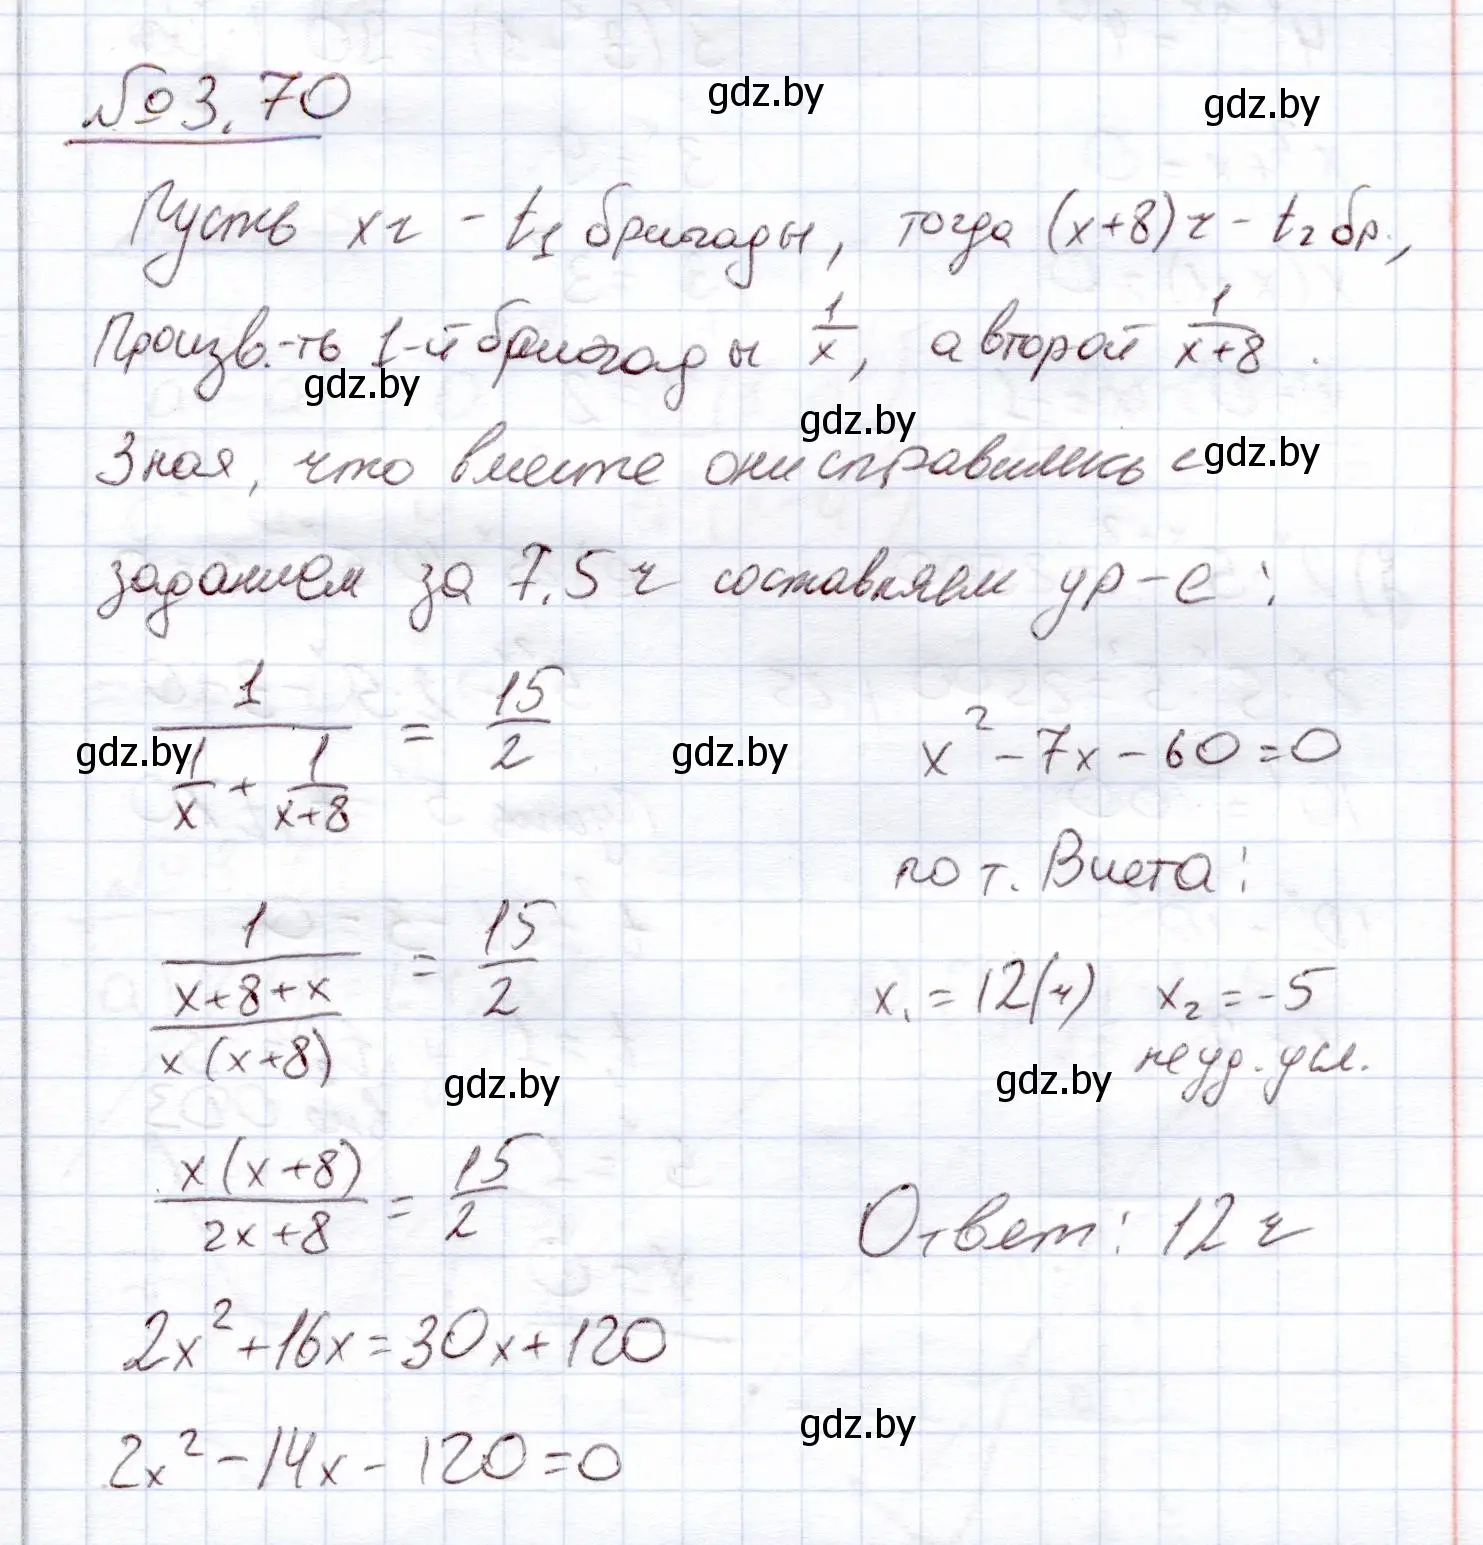 №3.70
gdz.by
gdz.by
Пусть x ч - t₁ бригады, тогда (x+8) ч - t₂ бр.,
Произв.-ть 1-й бригады 1/x, а второй 1/(x+8).
gdz.by
gdz.by
Зная, что вместе они справились с
gdz.by
заданием за 7.5 ч составляем ур-е:
1/(1/x + 1/(x+8)) = 15/2
gdz.by
gdz.by
1/((x+8+x)/(x(x+8))) = 15/2
gdz.by
x(x+8)/(2x+8) = 15/2
2x² + 16x = 30x + 120
2x² - 14x - 120 = 0
x² - 7x - 60 = 0
по т. Виета:
x₁ = 12(ч) x₂ = -5
gdz.by
не уд. усл.
Ответ: 12 ч
gdz.by